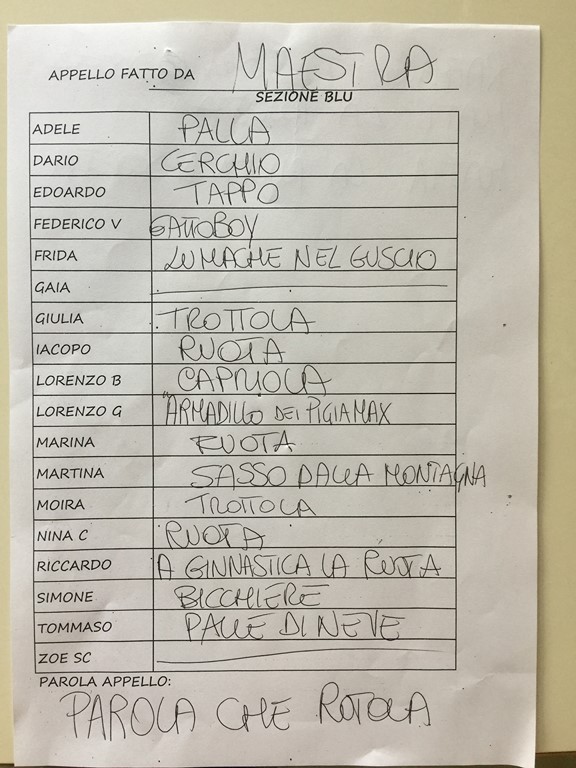 APPELLO FATTO DA MAESTRA
SEZIONE BLU
ADELE PALLA
DARIO CERCHIO
EDOARDO TAPPO
FEDERICO V GATTOBOY
FRIDA LUMACHE NEL GUSCIO
GAIA
GIULIA TROTTOLA
IACOPO RUOTA
LORENZO B CAPRIOLA
LORENZO G ARMADILLO DEI PIGIAMAX
MARINA RUOTA
MARTINA SASSO DALLA MONTAGNA
MOIRA TROTTOLA
NINA C RUOTA
RICCARDO A GINNASTICA LA RUOTA
SIMONE BICCHIERE
TOMMASO PALLE DI NEVE
ZOE SC
PAROLA APPELLO:
PAROLA CHE ROTOLA